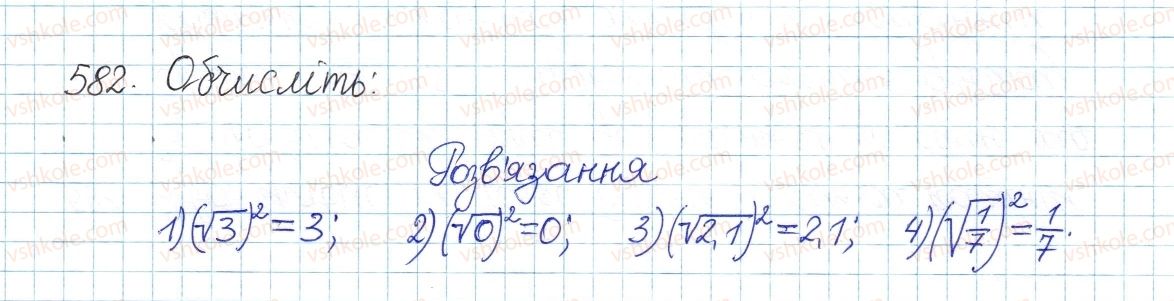 582. Обчисліть:
Розв'язання
1) (√3)² = 3; 2) (√0)² = 0; 3) (√2,1)² = 2,1; 4) (√1/7)² = 1/7.